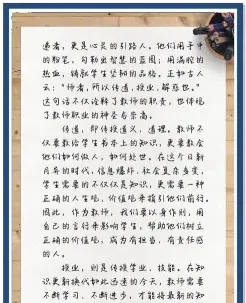 递者,更是心灵的引路人。他们用手中
的粉笔,勾勒出智慧的蓝图;用满腔的
热血,铸就学生坚韧的品格。正如古人
云:“师者,所以传道,授业,解惑也。”
这句话不仅诠释了教师的职责,也体现
了教师职业的神圣与崇高。
传道,即传授道义、道理。教师不
仅要教给学生书本上的知识,更要教会
他们如何做人,如何处世。在这个日新
月异的时代,信息爆炸,社会复杂多变,
学生需要的不仅仅是知识,更需要一种
正确的人生观,价值观来指引他们前行。
因此,作为教师,我们要以身作则,用
自己的言行来影响学生,帮助他们树立
正确的价值观,成为有担当,有责任感
的人。
授业,则是传授学业、技能。在知
识更新换代如此迅速的今天,教师需要
不断学习,不断进步,才能将最新的知